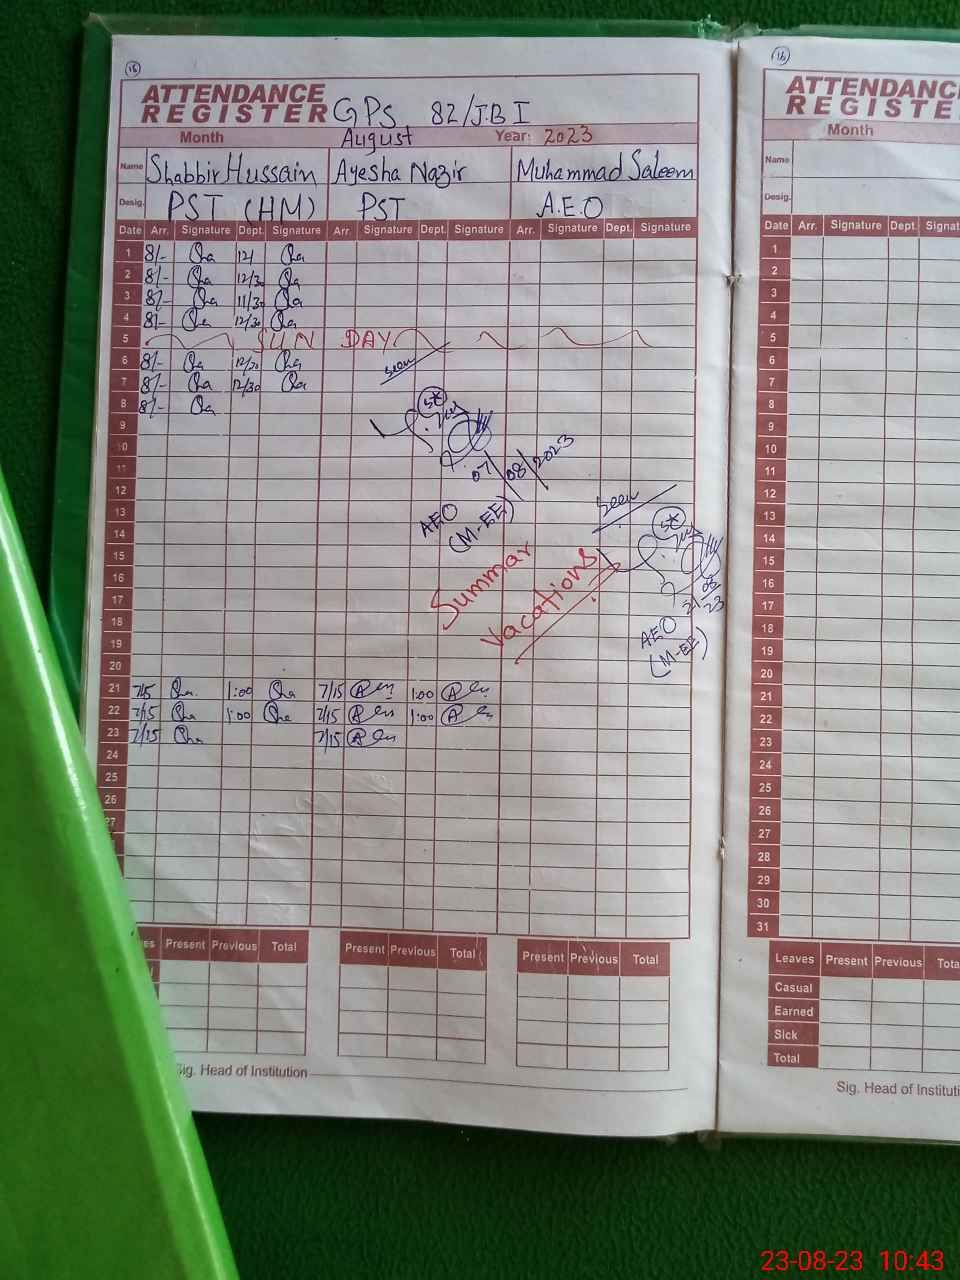 16
ATTENDANCE
REGISTER GPS 82/J.B I
Month August Year: 2023
Name Shabbir Hussain Ayesha Nazir Muhammad Saleem
Desig. PST (HM) PST A.E.O
Date Arr. Signature Dept. Signature Arr. Signature Dept. Signature Arr. Signature Dept. Signature
1 8/- 12/
2 8/- 12/30
3 8/- 11/30
4 8/- 12/30
5 SUN DAY
6 8/- 12/30
7 8/- 12/30
8 8/-
9
10
11
12
13
14
15
16
17
18
19
20
21 7/15 1:00 7/15 1:00
22 7/15 1:00 7/15 1:00
23 7/15 7/15
24
25
26
27
seen
07/08/2023
AEO
(M-EE)
Summar
Vacations
seen
21/08/23
AEO
(M-EE)
Present Previous Total Present Previous Total Present Previous Total
Sig. Head of Institution
16
ATTENDANCE
REGISTE
Month
Name
Desig.
Date Arr. Signature Dept. Signat
1
2
3
4
5
6
7
8
9
10
11
12
13
14
15
16
17
18
19
20
21
22
23
24
25
26
27
28
29
30
31
Leaves Present Previous Tota
Casual
Earned
Sick
Total
Sig. Head of Instituti
23-08-23 10:43